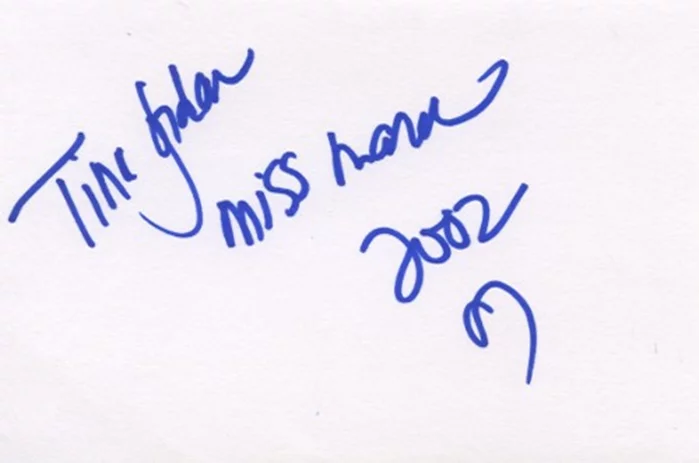 Tina Jordan
Miss March
2002